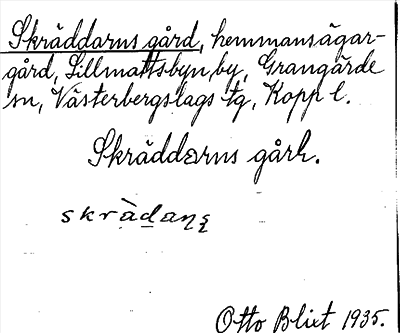 Skräddarns gård, hemmansägar-
gård, Lillmattsbyn, by, Grangärde
sn, Västerbergslags tg, Kopp l.
Skräddarns gårh.
skrädaṇs
Otto Blixt 1935.